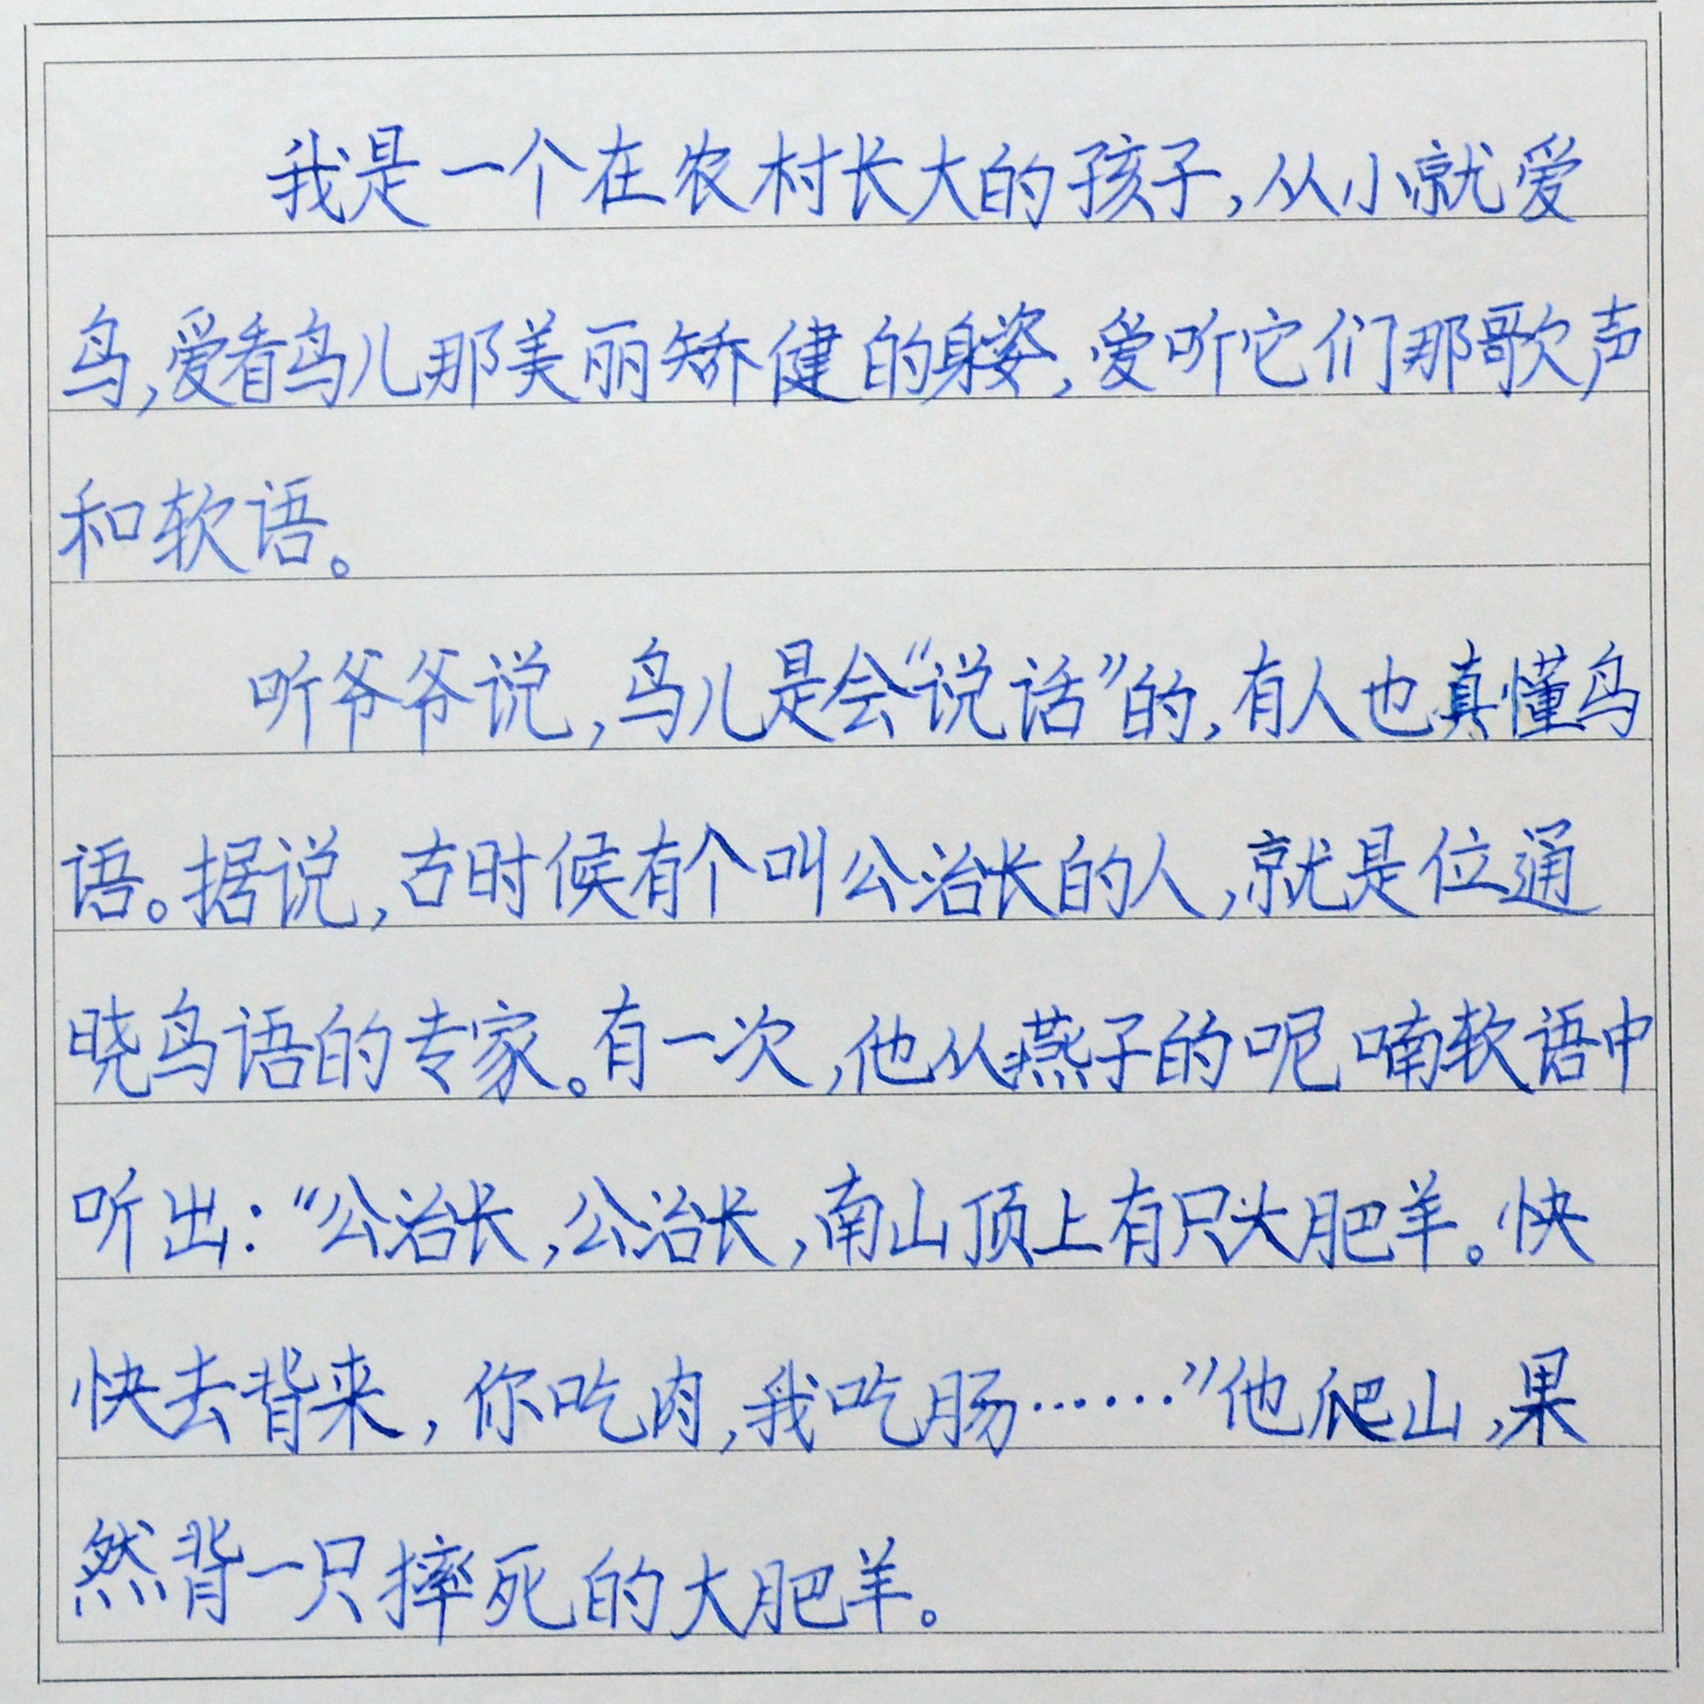 我是一个在农村长大的孩子,从小就爱
鸟,爱看鸟儿那美丽矫健的身姿,爱听它们那歌声
和软语。
听爷爷说,鸟儿是会“说话”的,有人也真懂鸟
语。据说,古时候有个叫公治长的人,就是位通
晓鸟语的专家。有一次,他从燕子的呢喃软语中
听出:“公治长,公治长,南山顶上有只大肥羊。快
快去背来,你吃肉,我吃肠……”他爬山,果
然背一只摔死的大肥羊。